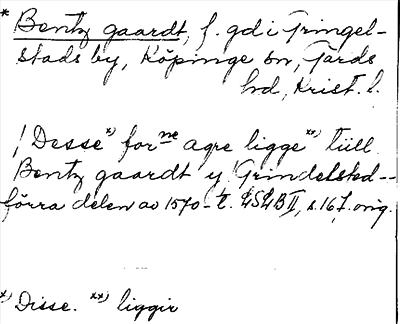 * Bentz gaardt, f. gd i Gringel-
stads by, Köpinge sn, Gärds
hd, Krist. l.
/ Desse *) for ne agre ligge **) tiill
Bentz gaardt y Grindelsted --
förra delen av 1570-t. LSLB II, s. 167. orig.
*) Disse. **) liggir